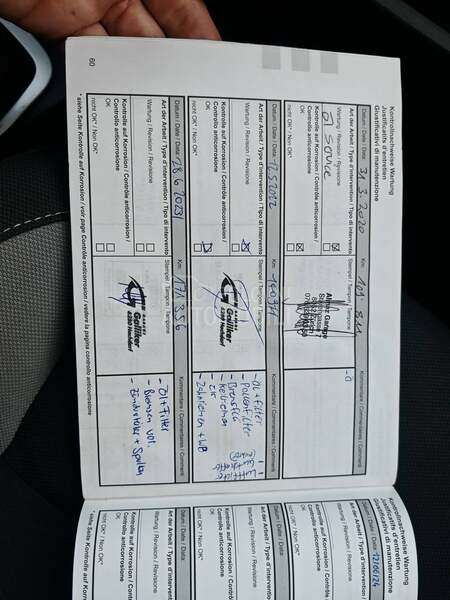 Kontrollnachweise Wartung
Justificatifs d'entretien
Giustificativi di manutenzione
Datum / Date / Data
31.3.2020
Km
101 811
Art der Arbeit / Type d'intervention / Tipo di intervento
Stempel / Tampon / Tampone
Kommentare / Commentaires / Commenti
Wartung / Revision / Revisione
öl Service
Kontrolle auf Korrosion / Contrôle anticorrosion /
Controllo anticorrosione
OK
nicht OK* / Non OK*
Garage
Datum / Date / Data
12.5.2022
Km
Art der Arbeit / Type d'intervention / Tipo di intervento
Stempel / Tampon / Tampone
Kommentare / Commentaires / Commenti
Wartung / Revision / Revisione
Kontrolle auf Korrosion / Contrôle anticorrosion /
Controllo anticorrosione
OK
nicht OK* / Non OK*
GARAGE
Gölliker
6280 Hochdorf
- Öl + Filter
- Pollenfilter
- Keilriemen
- Zahnriemen + WP
Datum / Date / Data
28.6.2023
Km
171 356
Art der Arbeit / Type d'intervention / Tipo di intervento
Stempel / Tampon / Tampone
Kommentare / Commentaires / Commenti
Wartung / Revision / Revisione
Kontrolle auf Korrosion / Contrôle anticorrosion /
Controllo anticorrosione
OK
nicht OK* / Non OK*
GARAGE
Gölliker
6280 Hochdorf
- Öl + Filter
- Bremsen vo.
* siehe Seite Kontrolle auf Korrosion / voir page Contrôle anticorrosion / vedere la pagina controllo anticorrosione
60
Kontrollnachweise Wartung
Justificatifs d'entretien
Giustificativi di manutenzione
Datum / Date / Data
12/06/24
Art der Arbeit / Type d'intervention
Wartung / Revision / Revisione
Kontrolle auf Korrosion / Con
Controllo anticorrosione
OK
nicht OK* / Non OK*
Datum / Date / Data
Art der Arbeit / Type d'interven
Wartung / Revision / Revisione
Kontrolle auf Korrosion / Contr
Controllo anticorrosione
OK
nicht OK* / Non OK*
Datum / Date / Data
Art der Arbeit / Type d'interv
Wartung / Revision / Revisione
Kontrolle auf Korrosion / Co
Controllo anticorrosione
OK
nicht OK* / Non OK*
* siehe Seite Kontrolle auf Kor